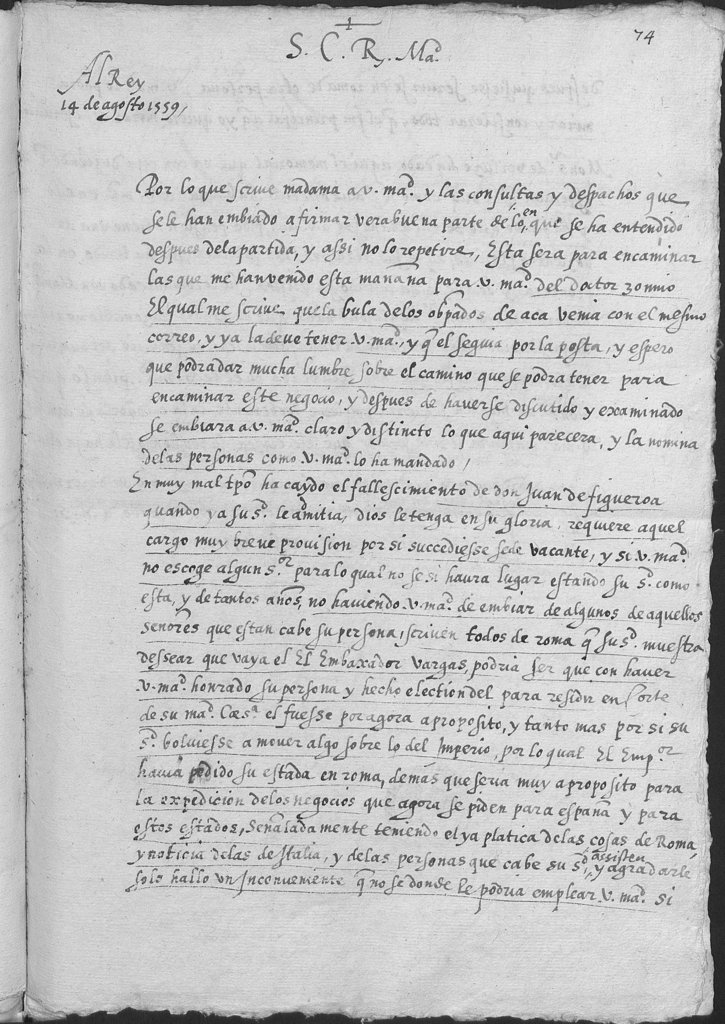 1
74
S. C. R. Ma.d
Al Rey
14 de agosto 1559,
Por lo que scrive madama a v. ma.d y las consultas y despachos que
se le han embiado a firmar vera buena parte de lo en que se ha entendido
despues dela partida, y assi no lo repetire, Esta sera para encaminar
las que me han venido esta mañana para v. ma.d del doctor zonnio
El qual me scrive que la bula delos obpados de aca venia con el mesmo
correo, y ya la deve tener v. ma.d, y q el seguia por la posta, y espero
que podra dar mucha lumbre sobre el camino que se podra tener para
encaminar este negocio, y despues de haverse discutido y examinado
se embiara a v. ma.d claro y distincto lo que aqui parecera, y la nomina
de las personas como v. ma.d lo ha mandado,
En muy mal tpo ha caydo el fallescimiento de don Juan de figueroa
quando ya su s.d le admitia, dios le tenga en su gloria, requiere aquel
cargo muy breve provision por si succediesse sede vacante, y si v. ma.d
no escoge algun s.or para lo qual no se si havra lugar estando su s.d como
esta, y de tantos años, no haviendo v. ma.d de embiar de algunos de aquellos
señores que estan cabe su persona, scriven todos de roma q su s.d muestra
dessear que vaya el El Embaxador Vargas, podria ser que con haver
v. ma.d honrado su persona y hecho election del para residir en Corte
de su ma.d Cæs.a el fuesse por agora a proposito, y tanto mas por si su
s.d bolviesse a mover algo sobre lo del Imperio, por lo qual El Emp.or
havia pedido su estada en roma, demas que seria muy a proposito para
la expedicion de los negocios que agora se piden para españa y para
estos estados, señaladamente teniendo el ya platica delas cosas de Roma,
y noticia delas de Italia, y delas personas que cabe su s.d assisten, y agradarle
solo hallo un Inconveniente q no se donde le podria emplear v. ma.d si